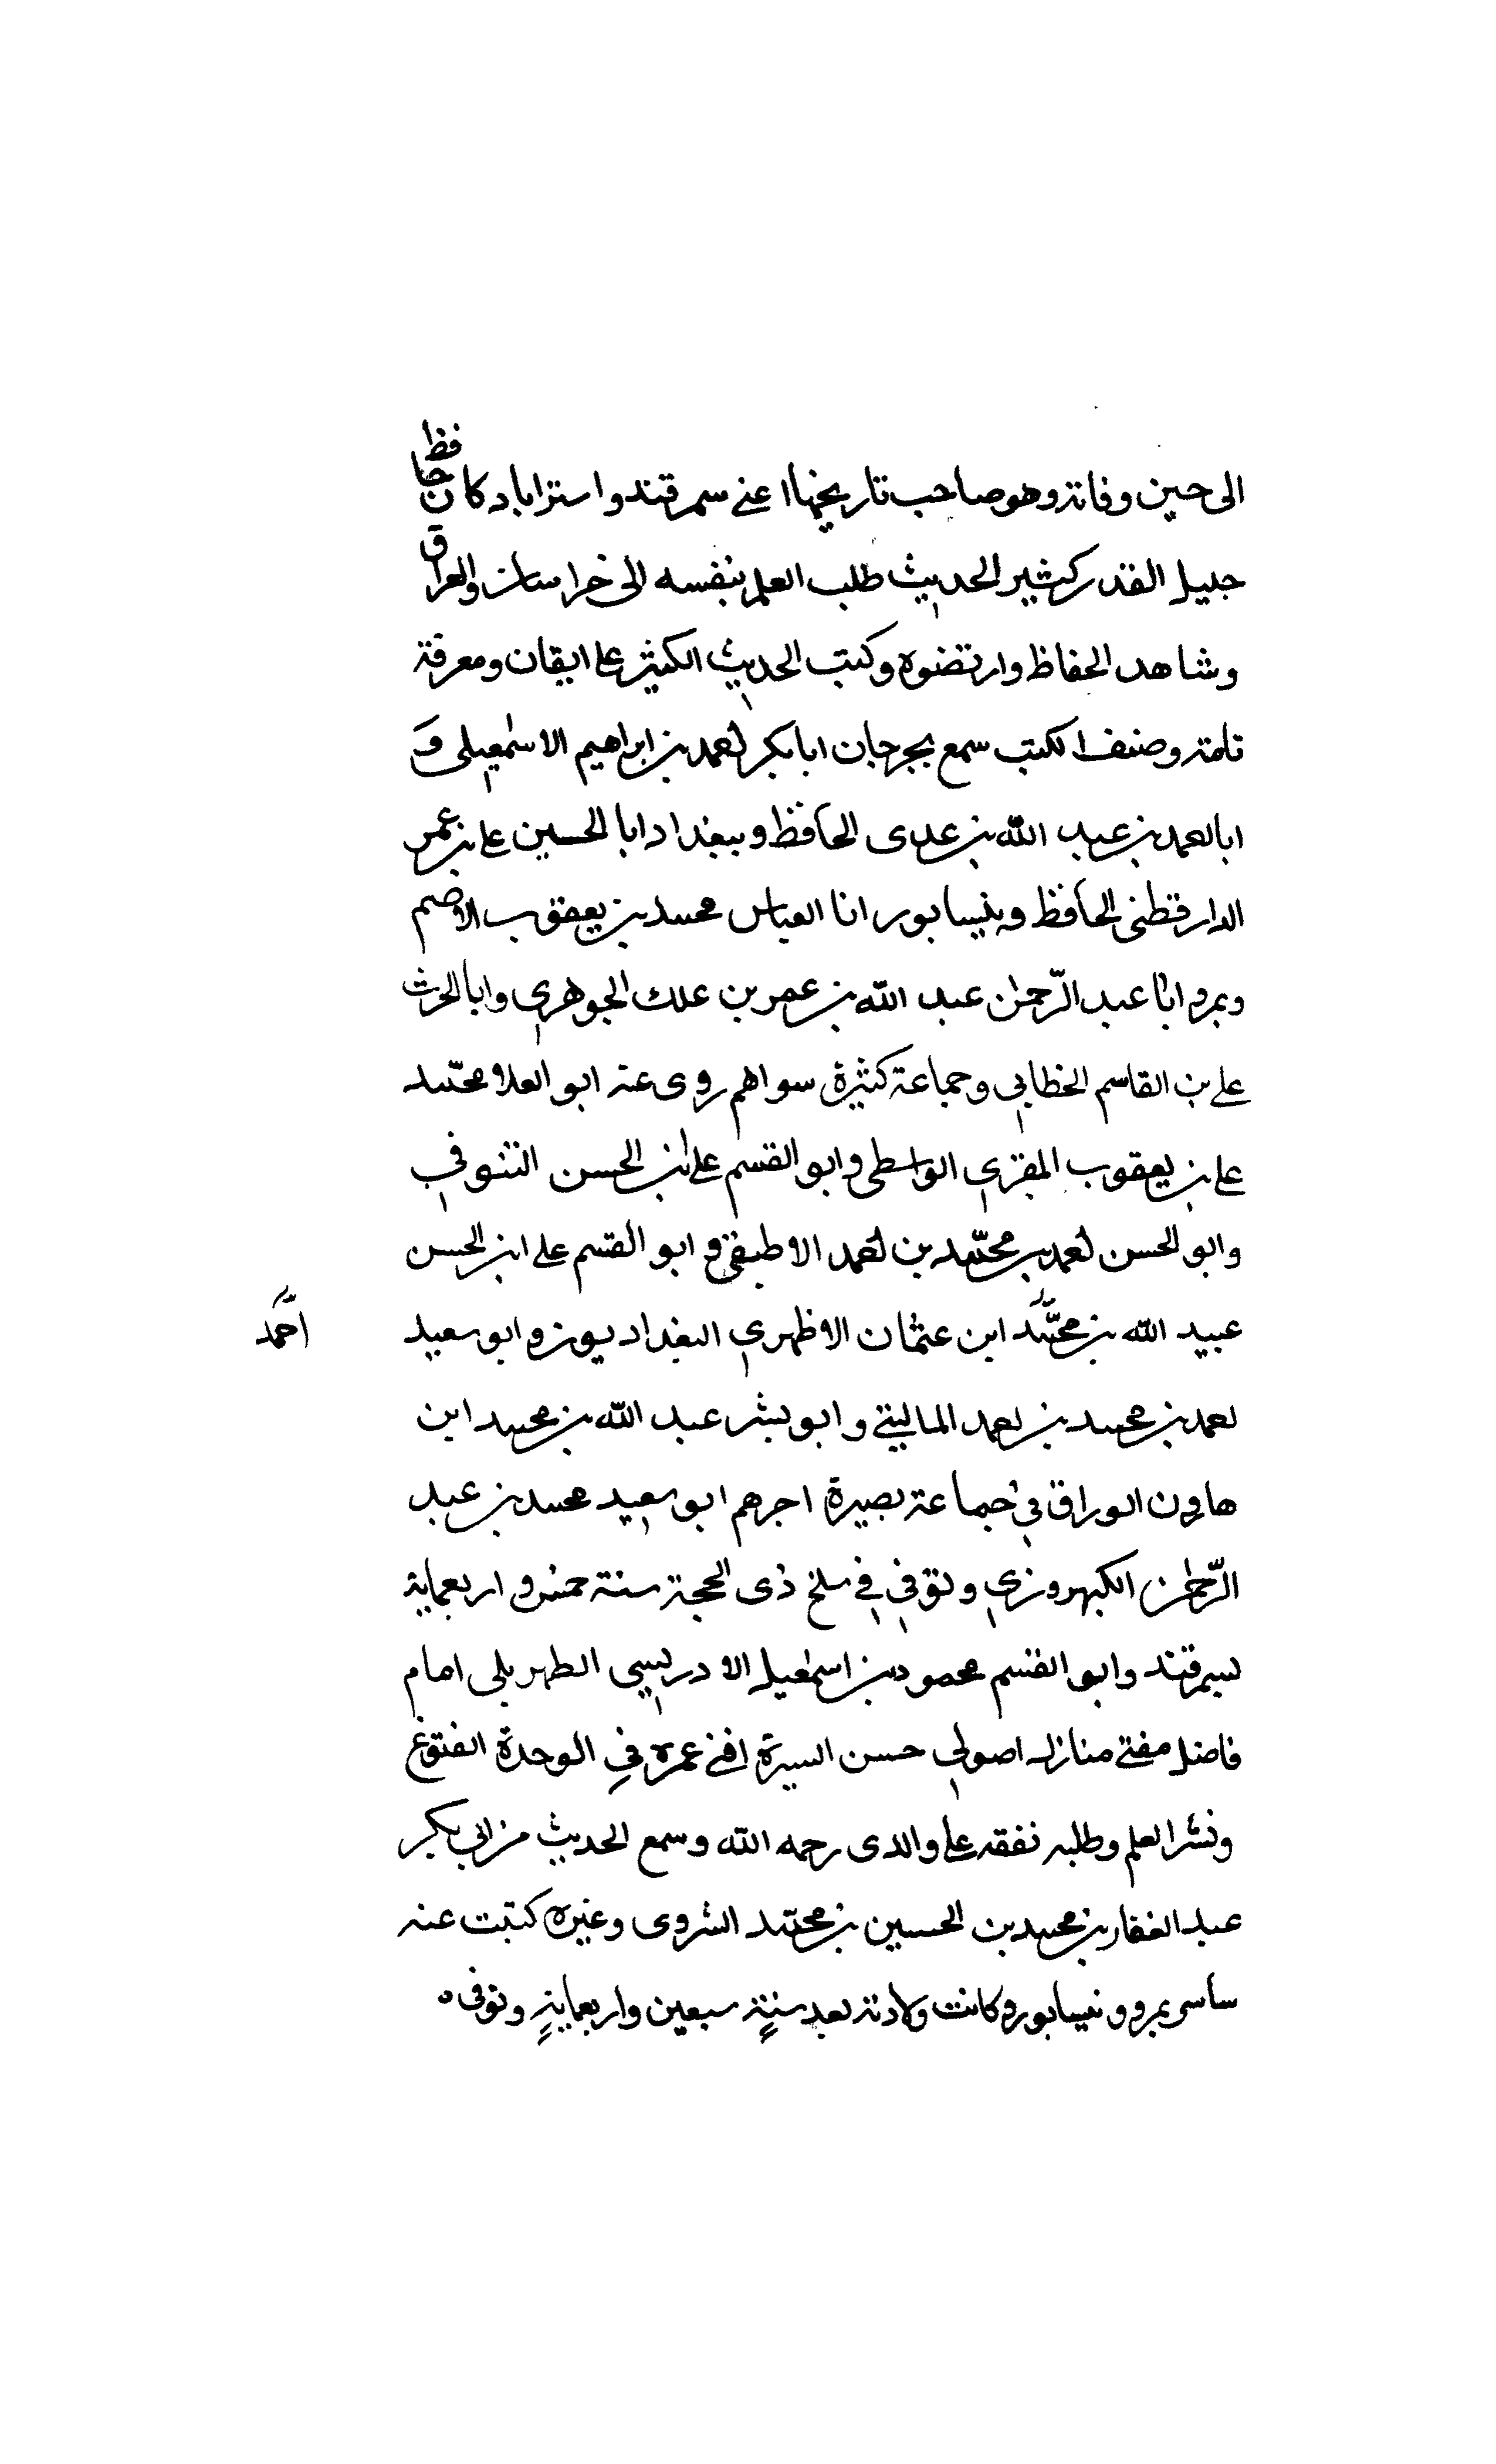 الى حين وفاته وهو صاحب تاريخها اعني سمرقند واستراباد كان حافظ
جليل القدر كثير الحديث طلب العلم بنفسه الى خراسان والعراق
وشاهد الحفاظ وارتضوه وكتب الحديث الكثير على ايقان ومعرفة
تامة وصنف الكتب سمع بجرجان ابا بكر احمد بن ابراهيم الاسمعيلى و
ابا احمد بن عبد الله بن عدى الحافظ وببغداد ابا الحسين على بن عمر
الدارقطنى الحافظ وبنيسابور انا العباس محمد بن يعقوب الاصم
وبمرو ابا عبد الرّحمن عبد الله بن عمر بن علك الجوهري وابا الحرث
على بن القاسم الخطابي وجماعة كثيرة سواهم روى عنه ابو العلا محمّد
على بن يعقوب المقري الواسطى وابو القسم على ابن الحسن التنوفي
وابو الحسن احمد بن محمّد بن احمد الاطيقي و ابو القسم على ابن الحسن
عبيد الله بن محمّد ابن عثمان الاظهري البغداديون وابو سعيد
احمد بن محمد بن احمد المالينى وابو بشر عبد الله بن محمد ابن
هارون الوراق في جماعة بصيرة اجرهم ابو سعيد محمد بن عبد
الرّحمن الكبهروزي وتوفي في سلخ ذى الحجة سنة خمس و اربعماية
بسمرقند وابو القسم محمود بن اسمعيل الادريسي الطهربلى امام
فاضل مفتى منازل اصولي حسن السيرة افنى عمره في الوحدة الفتوغ
ونشر العلم وطلبه تفقه على والدى رحمه الله وسمع الحديث من ابى بكر
عبد الغفار بن محمد بن الحسين بن محمّد الشروى وغيره كتبت عنه
بمرو ونيسابور وكانت ولادته بعد سنةٍ سبعين واربعمايةٍ وتوفى ٥
احمّد